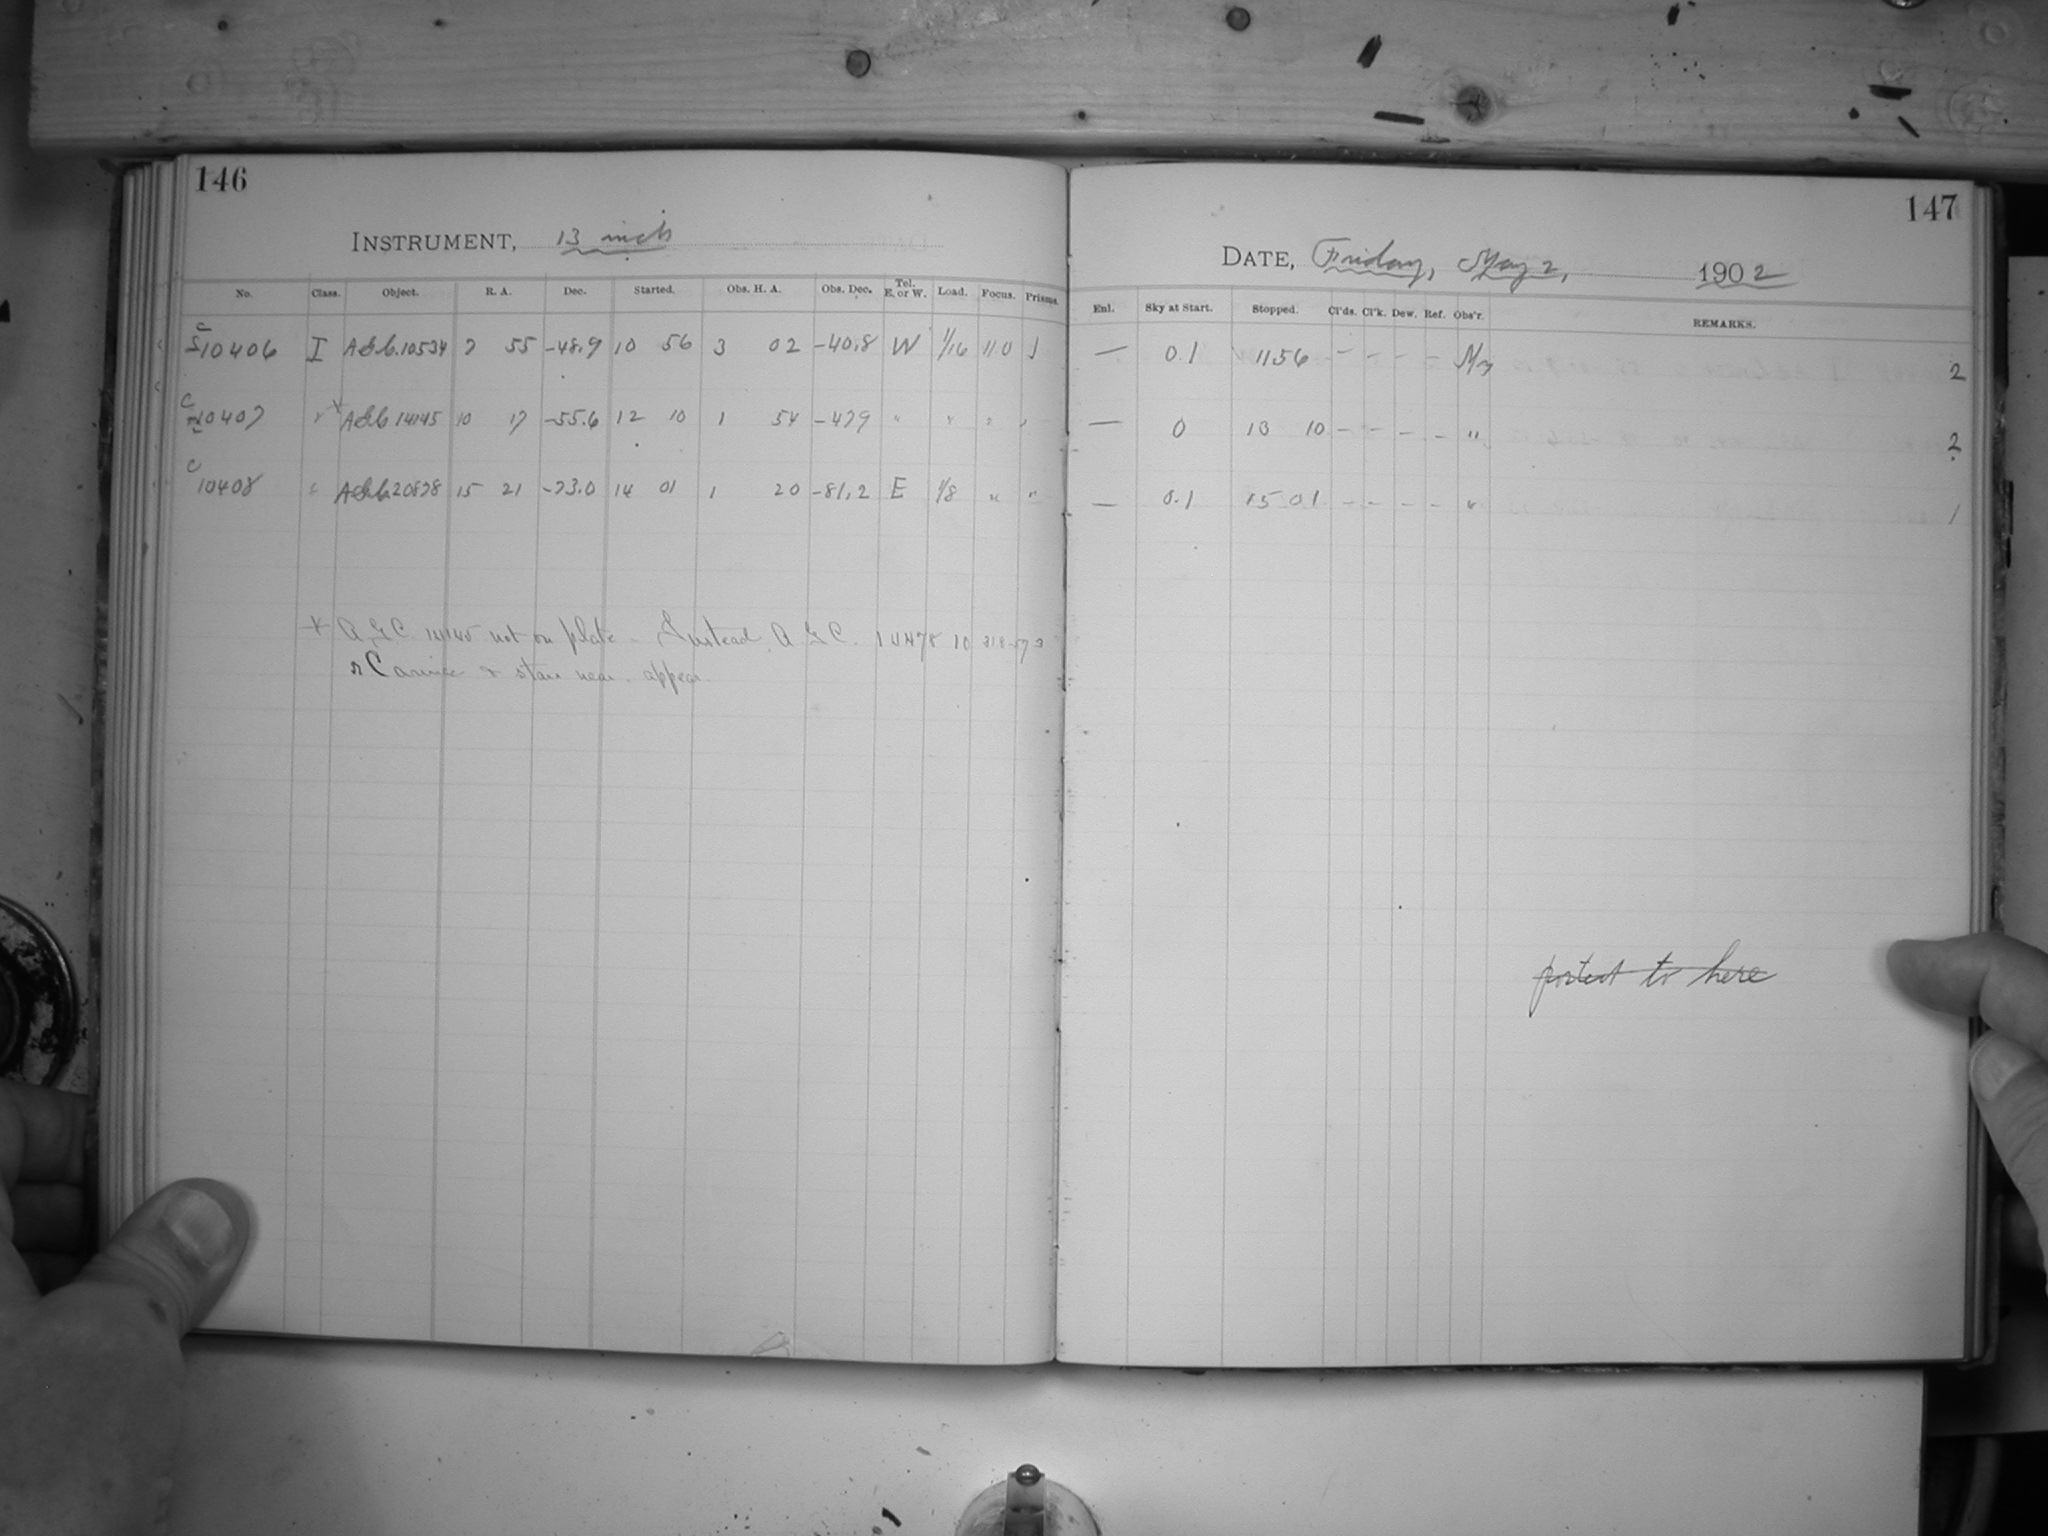 146
INSTRUMENT, 13 inch
No. Class. Object. R. A. Dec. Started. Obs. H. A. Obs. Dec. Tel. E. or W. Load. Focus. Prisms.
C 10406 I A.G.C. 10534 7 55 -48.9 10 56 3 02 -40.8 W 1/16 110 1
C 10407 " * A.G.C. 14145 10 17 -55.6 12 10 1 54 -47.9 " " " "
C 10408 " A.G.C. 20878 15 21 -73.0 14 01 1 20 -81.2 E 1/8 " "
* A.G.C. 14145 not on plate - Instead A G C. 10
η Carinae & stars near appear.
147
DATE, Friday, May 2, 1902
Enl. Sky at Start. Stopped. Cl'ds. Cl'k. Dew. Ref. Obs'r. REMARKS.
— 0.1 11 56 - - - - 2
— 0 13 10 - - - - " 2
— 0.1 15 01 - - - - " 1
posted to here